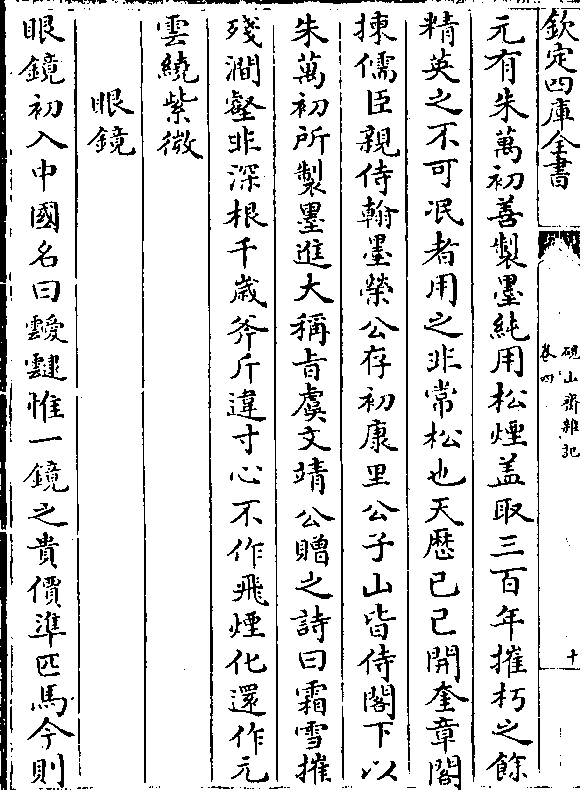 欽定四庫全書
硯山齋雜記
卷四
十
元有朱萬初善製墨純用松煙盖取三百年摧朽之餘
精英之不可泯者用之非常松也天厯已已開奎章閣
揀儒臣親侍翰墨榮公存初康里公子山皆侍閣下以
朱萬初所製墨進大稱旨虞文靖公贈之詩曰霜雪摧
殘澗壑非深根千歲斧斤違寸心不作飛煙化還作元
雲繞紫微
眼鏡
眼鏡初入中國名曰靉靆惟一鏡之貴價準匹馬今則